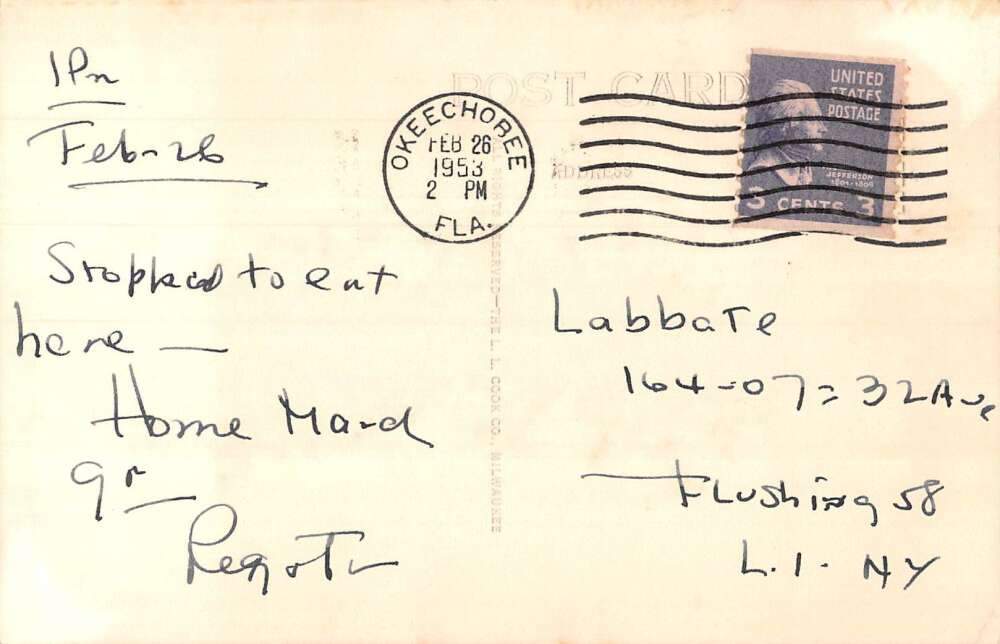 1Pm
Feb-26
Stopped to eat
here —
Home Mar-d
9
POST CARD
ADDRESS
OKEECHOBEE
FEB 26
1953
2 PM
FLA.
UNITED
STATES
POSTAGE
JEFFERSON
1801-1809
3 CENTS 3
ALL RIGHTS RESERVED—THE L. L. COOK CO., MILWAUKEE
Labbate
164-07=32Ave
Flushing 58
L.I. NY